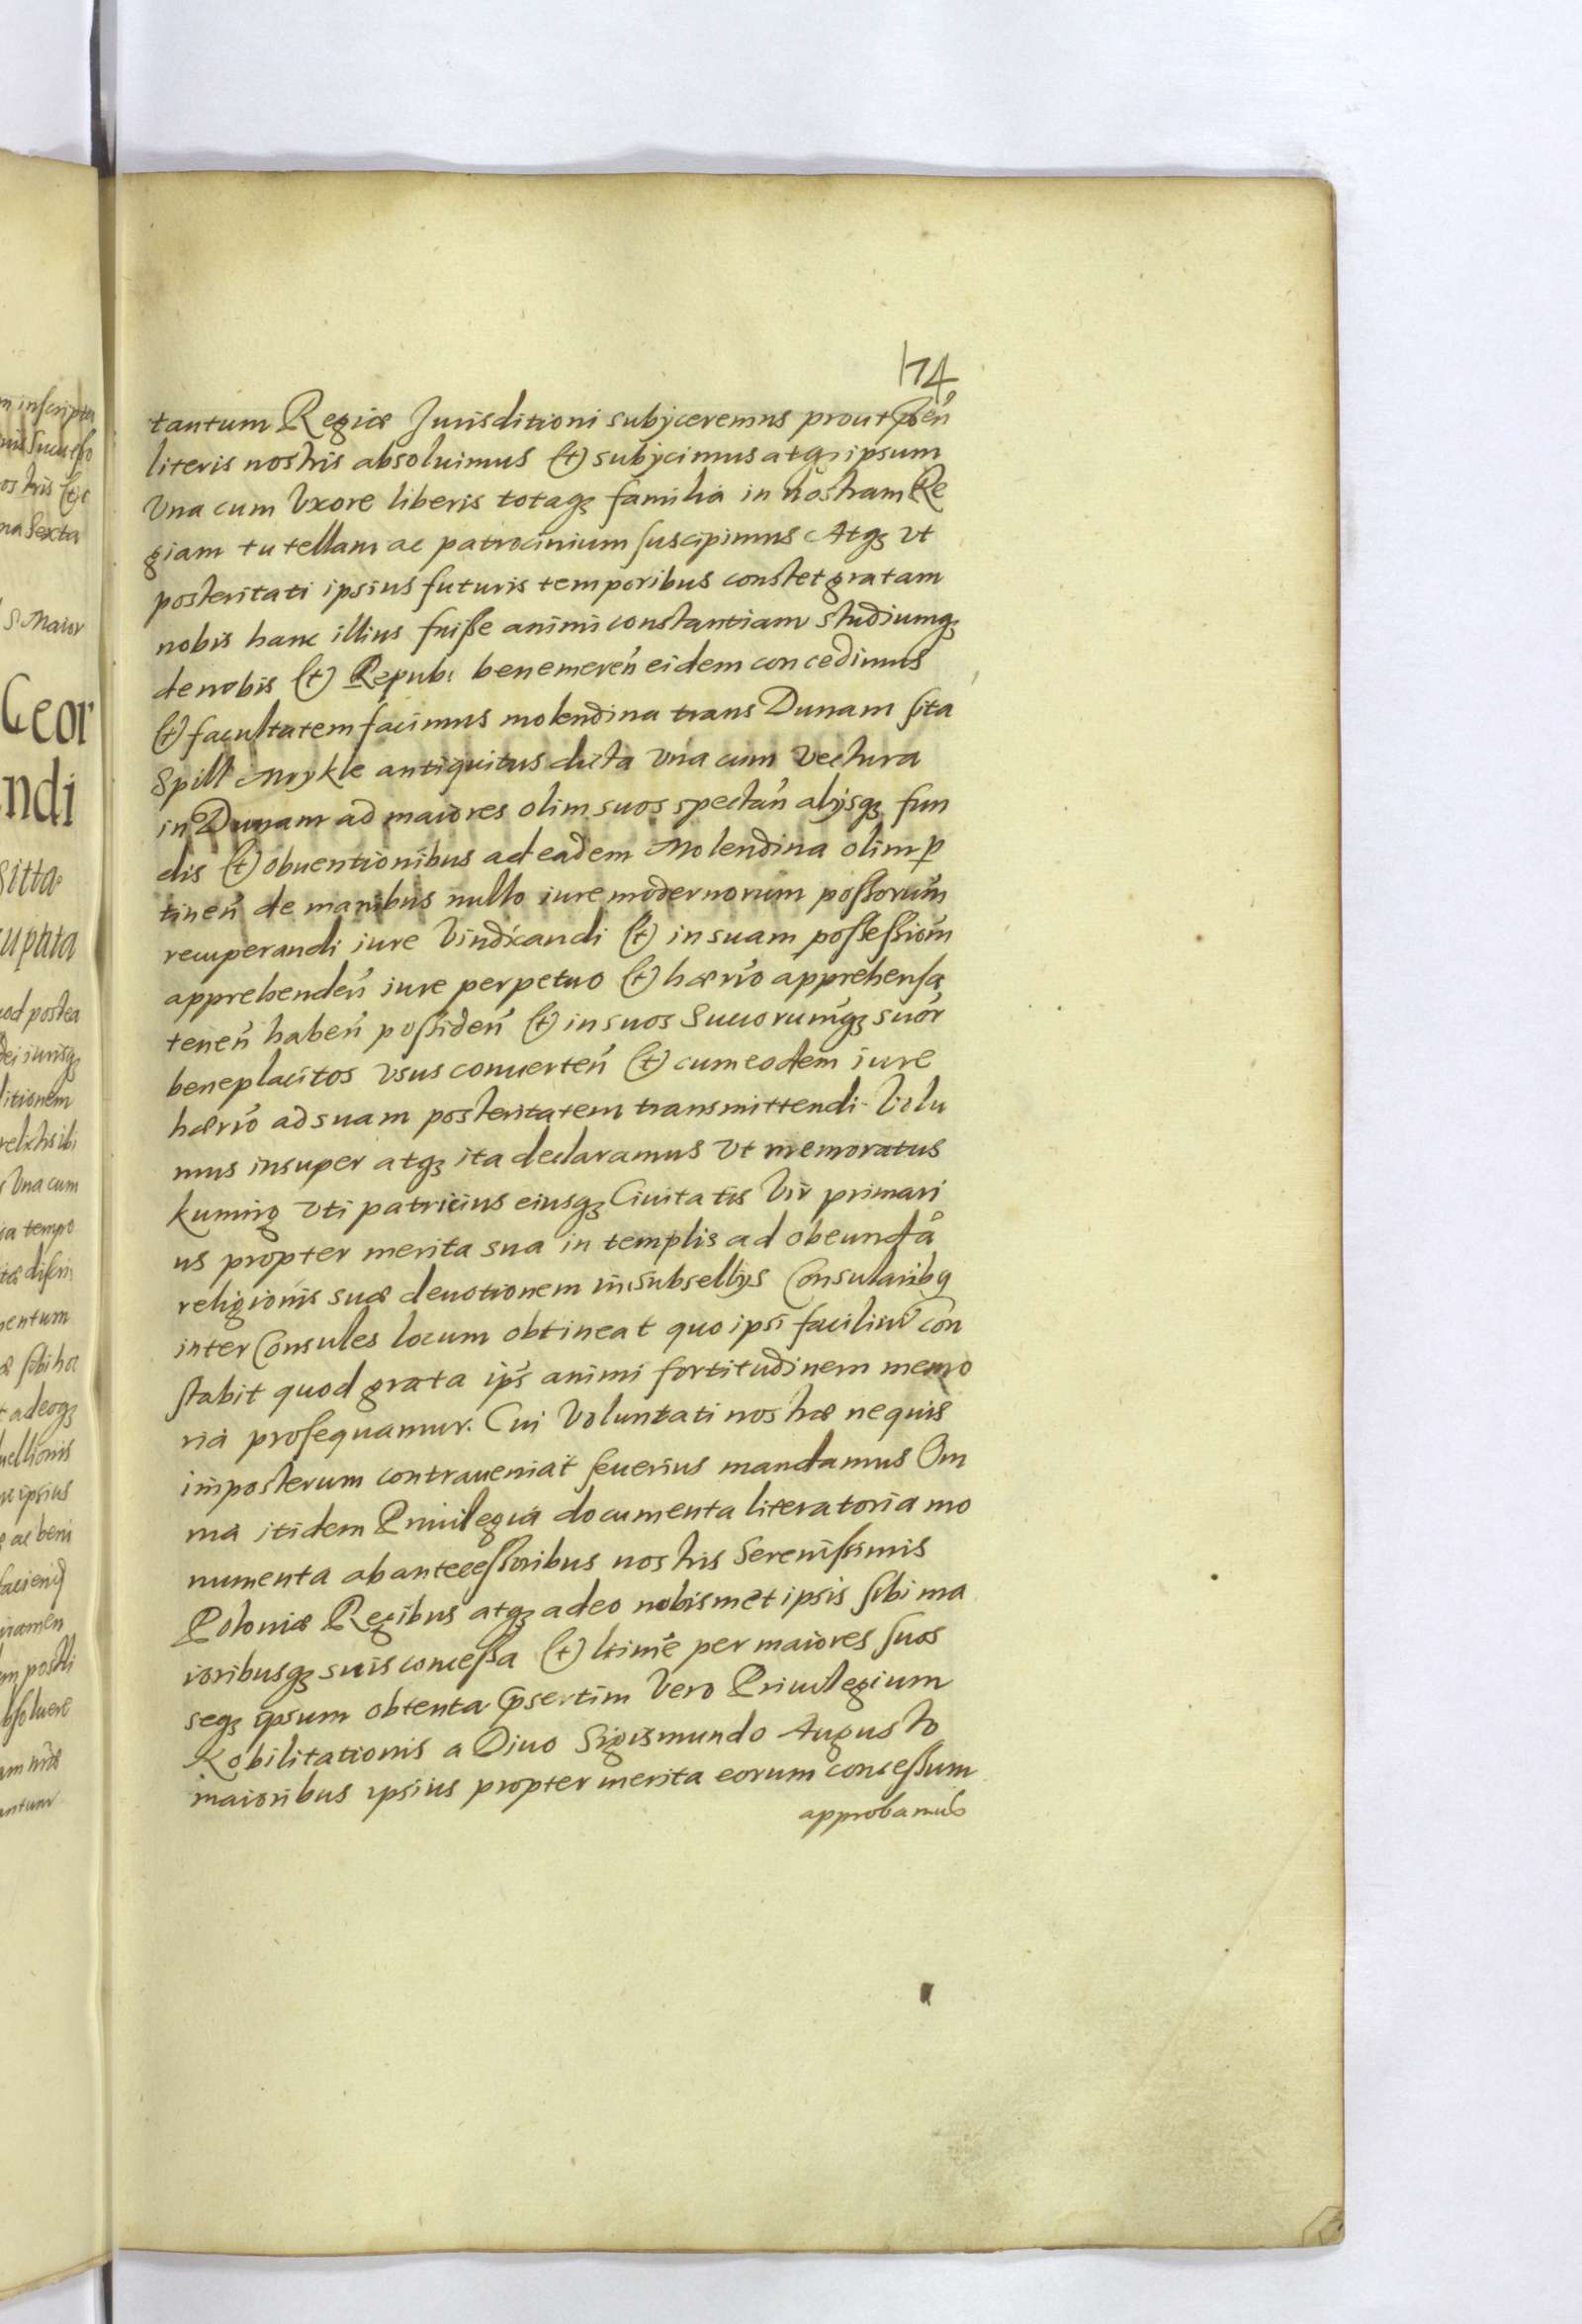 74
tantum Regiæ Jurisditioni subijceremus prout p̄sen̄
literis nostris absoluimus et subijcimus atq; ipsum
Vna cum Vxore liberis totaq; familia in nostram Re
giam tutellam ac patrocinium suscipimus Atq; vt
posteritati ipsius futuris temporibus constet gratam
nobis hanc illius fuisse animi constantiam studiumq;
de nobis et Repub: benemeren̄ eidem concedimus
et facultatem facimus molendina trans Dunam sita
Spill Mykle antiquitus dicta vna cum vectura
in Dunam ad maiores olim suos spectan̄ alijsq; fun
dis et obuentionibus ad eadem Molendina olim p
tinen̄ de manibus nullo iure modernorum possorum̄
recuperandi iure Vindicandi et in suam possessiom̄
apprehenden̄ iure perpetuo et hærio̅ apprehensa
tenen̄ haben̄ possiden̄ et in suos Suuorumq; suor̄
beneplacitos vsus conuerten̄ et cum eodem iure
hærio̅ ad suam posteritatem transmittendi. Volu
mus insuper atq; ita declaramus vt memoratus
kuning vti patricius eiusq; Ciuitatis Vir primari
us propter merita sua in templis ad obeundā
religionis suæ deuotionem in subsellijs Consularibq
inter Consules locum obtineat quo ipsi facilius con
stabit quod grata ip̄s animi fortitudinem memo
ria prosequamur. Cui Voluntati nostræ nequis
imposterum contraueniat seuerius mandamus Om
nia itidem Priuilegia documenta literatoria mo
numenta ab antecessoribus nostris Serenissimis
Poloniæ Regibus atq; adeo nobismet ipsis sibi ma
ioribusq; suis concessa et ltime̅ per maiores suos
seq; ipsum obtenta p̄sertim Vero Priuilegium
Nobilitationis a Diuo Sigismundo Augusto
maioribus ipsius propter merita eorum concessum
approbamus